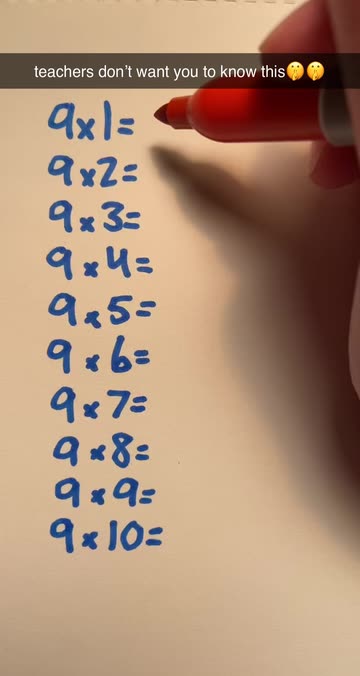 teachers don't want you to know this🤫🤫
9x1=
9x2=
9x3=
9x4=
9x5=
9x6=
9x7=
9x8=
9x9=
9x10=